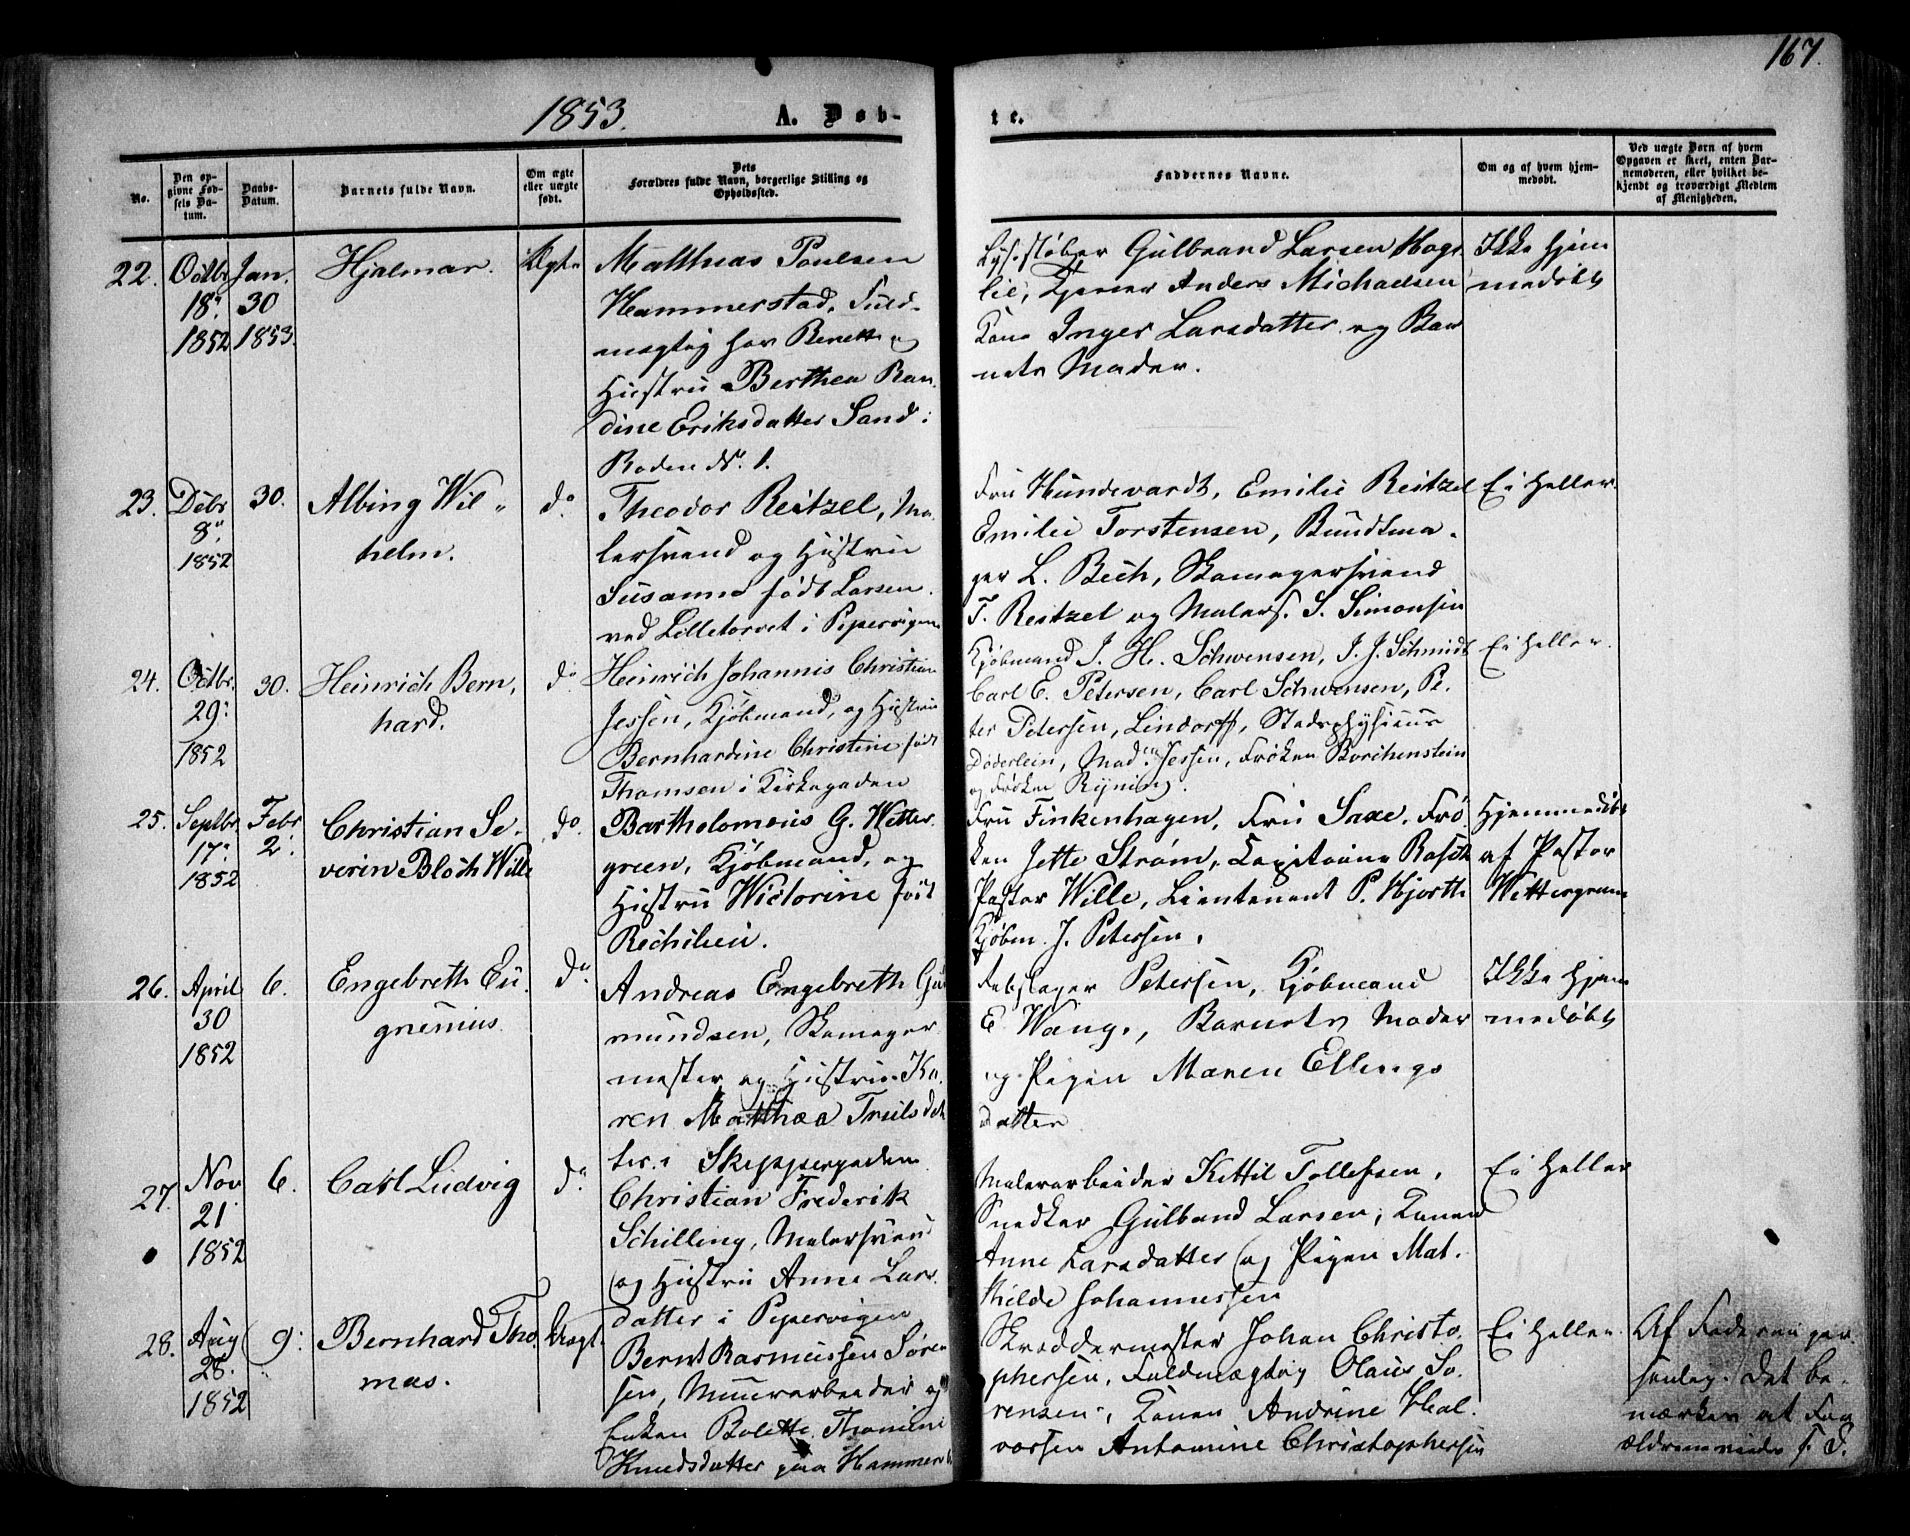 167.
1853.
A. Døb-
te.
No.
Den opgivne Fødsels Datum.
Daabs-Datum.
Barnets fulde Navn.
Om ægte eller uægte født.
Dets Forældres fulde Navn, borgerlige Stilling og Opholdssted.
Faddernes Navne.
Om og af hvem hjemmedøbt.
Ved uægte Børn af hvem Opgaven er skeet, enten Barnemoderen, eller hvilket bekjendt og troværdigt Medlem af Menigheden.
22.
Octbr
18"
1852
Jan.
30
1853.
Hjalmar.
Ægte
Matthias Poulsen
Hammerstad, Fuld-
mægtig hos Benett og
Hustru Berthea Ran
dine Eriksdatter Sand:
Boden No. 1.
Lysestøber Gulbrand Larsen Hogs
lie, Anders Michaelsen
Kone Inger Larsdatter og Bar
nets Moder.
Ikke hjem
medøbt
23.
Debr
8"
1852
30.
Albing Wil-
helm.
do
Theodor Reitzel, Ma-
lersvend og Hustru
Susanne født Larsen.
ved Lilletorvet i Pipervigen
Fru Hundevardt, Emilie Reitzel
Emilie Torstensen, Bundtma-
ger L. Bech, Skomagersvend
T. Reitzel og Malers. S. Simonsen
Ei heller.
24.
Octbr.
29:
1852
30.
Heinrich Bern,
hard.
do
Heinrich Johannis Christian
Jessen, Kjøbmand, og Hustru
Bernhardine Christine født
Thomsen i Kirkegaden
Kjøbmand J. H. Schwensen, J. J. Schmidt
Carl E. Petersen, Carl Schwensen, Pe-
ter Petersen, Lindorff, Stadsphysicus
Døderlein, Mad. Jessen, Frøken Borchenstein
og Frøken Rÿning.
Ei heller.
25.
Septbr
17:
1852
Febr
2.
Christian Se-
verin Bloch Wille
do.
Bartholomeus G. Wetter-
green, Kjøbmand, og
Hustru Wictorine født
Richilien.
Fru Finkenhagen, Fru Saxe, Frø
ken Jette Strøm, Capitaine Rasch
Pastor Wille, Lieutenant P. Hjorth
Kjøbm. J. Petersen.
Hjemmedøbt
af Pastor
Wettergreen
26.
April
30
1852
6.
Engebreth Eu-
genius.
do
Andreas Engebreth Gud
mundsen, Skomager
mester og Hustru Ka-
ren Matthea Trulsdat
ter i Skippergaden
Rebslager Petersen, Kjøbmand
E. Wang, Barnets Moder
og Pigen Maren Ellings
datter
Ikke hjem
medøbt
27.
Nov
21
1852
6.
Carl Ludvig
do
Christian Frederik
Schilling, Malersvend
og Hustru Anne Lars-
datter i Pipervigen
Malerarbeider Kittil Tollefsen,
Snedker Gulbrand Larsen, Konen
Anne Larsdatter og Pigen Mat-
hilde Johannessen
Ei heller
28.
Aug
28.
1852
9:
Bernhard Tho-
mas.
Uægt.
Bernt Rasmussen Søren
sen, Muurarbeider og
Enken Bolette Thomine
Knudsdatter paa Hammers
Skreddermester Johan Christo-
phersen, Fuldmægtig Olaus So-
rensen, Konen Andrine Hal-
vorsen Antomine Christophersen
Ei heller
Af Faderen per
sonlig. Det be-
mærkes at For
ældrene